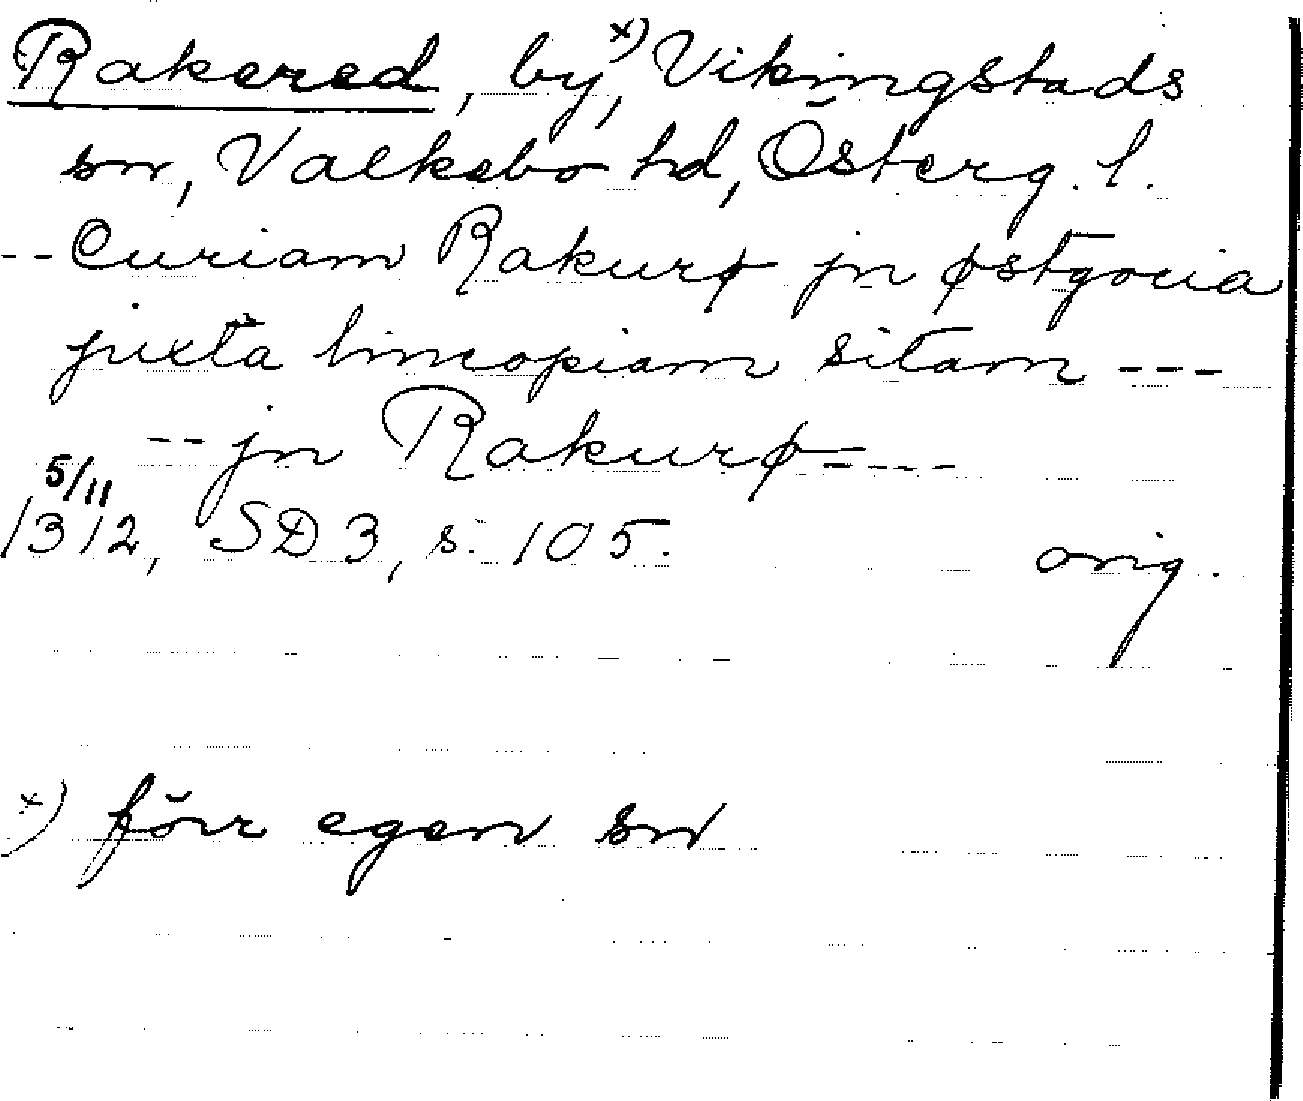 Rakered, by,x) Vikingstads
sn, Valkebo hd, Österg. l.
-- Curiam Rakurø jn østgocia
juxta lincopiam sitam ---
-- jn Rakurø ----
5/11
1312, SD 3, s. 105. orig.
x) förr egen sn